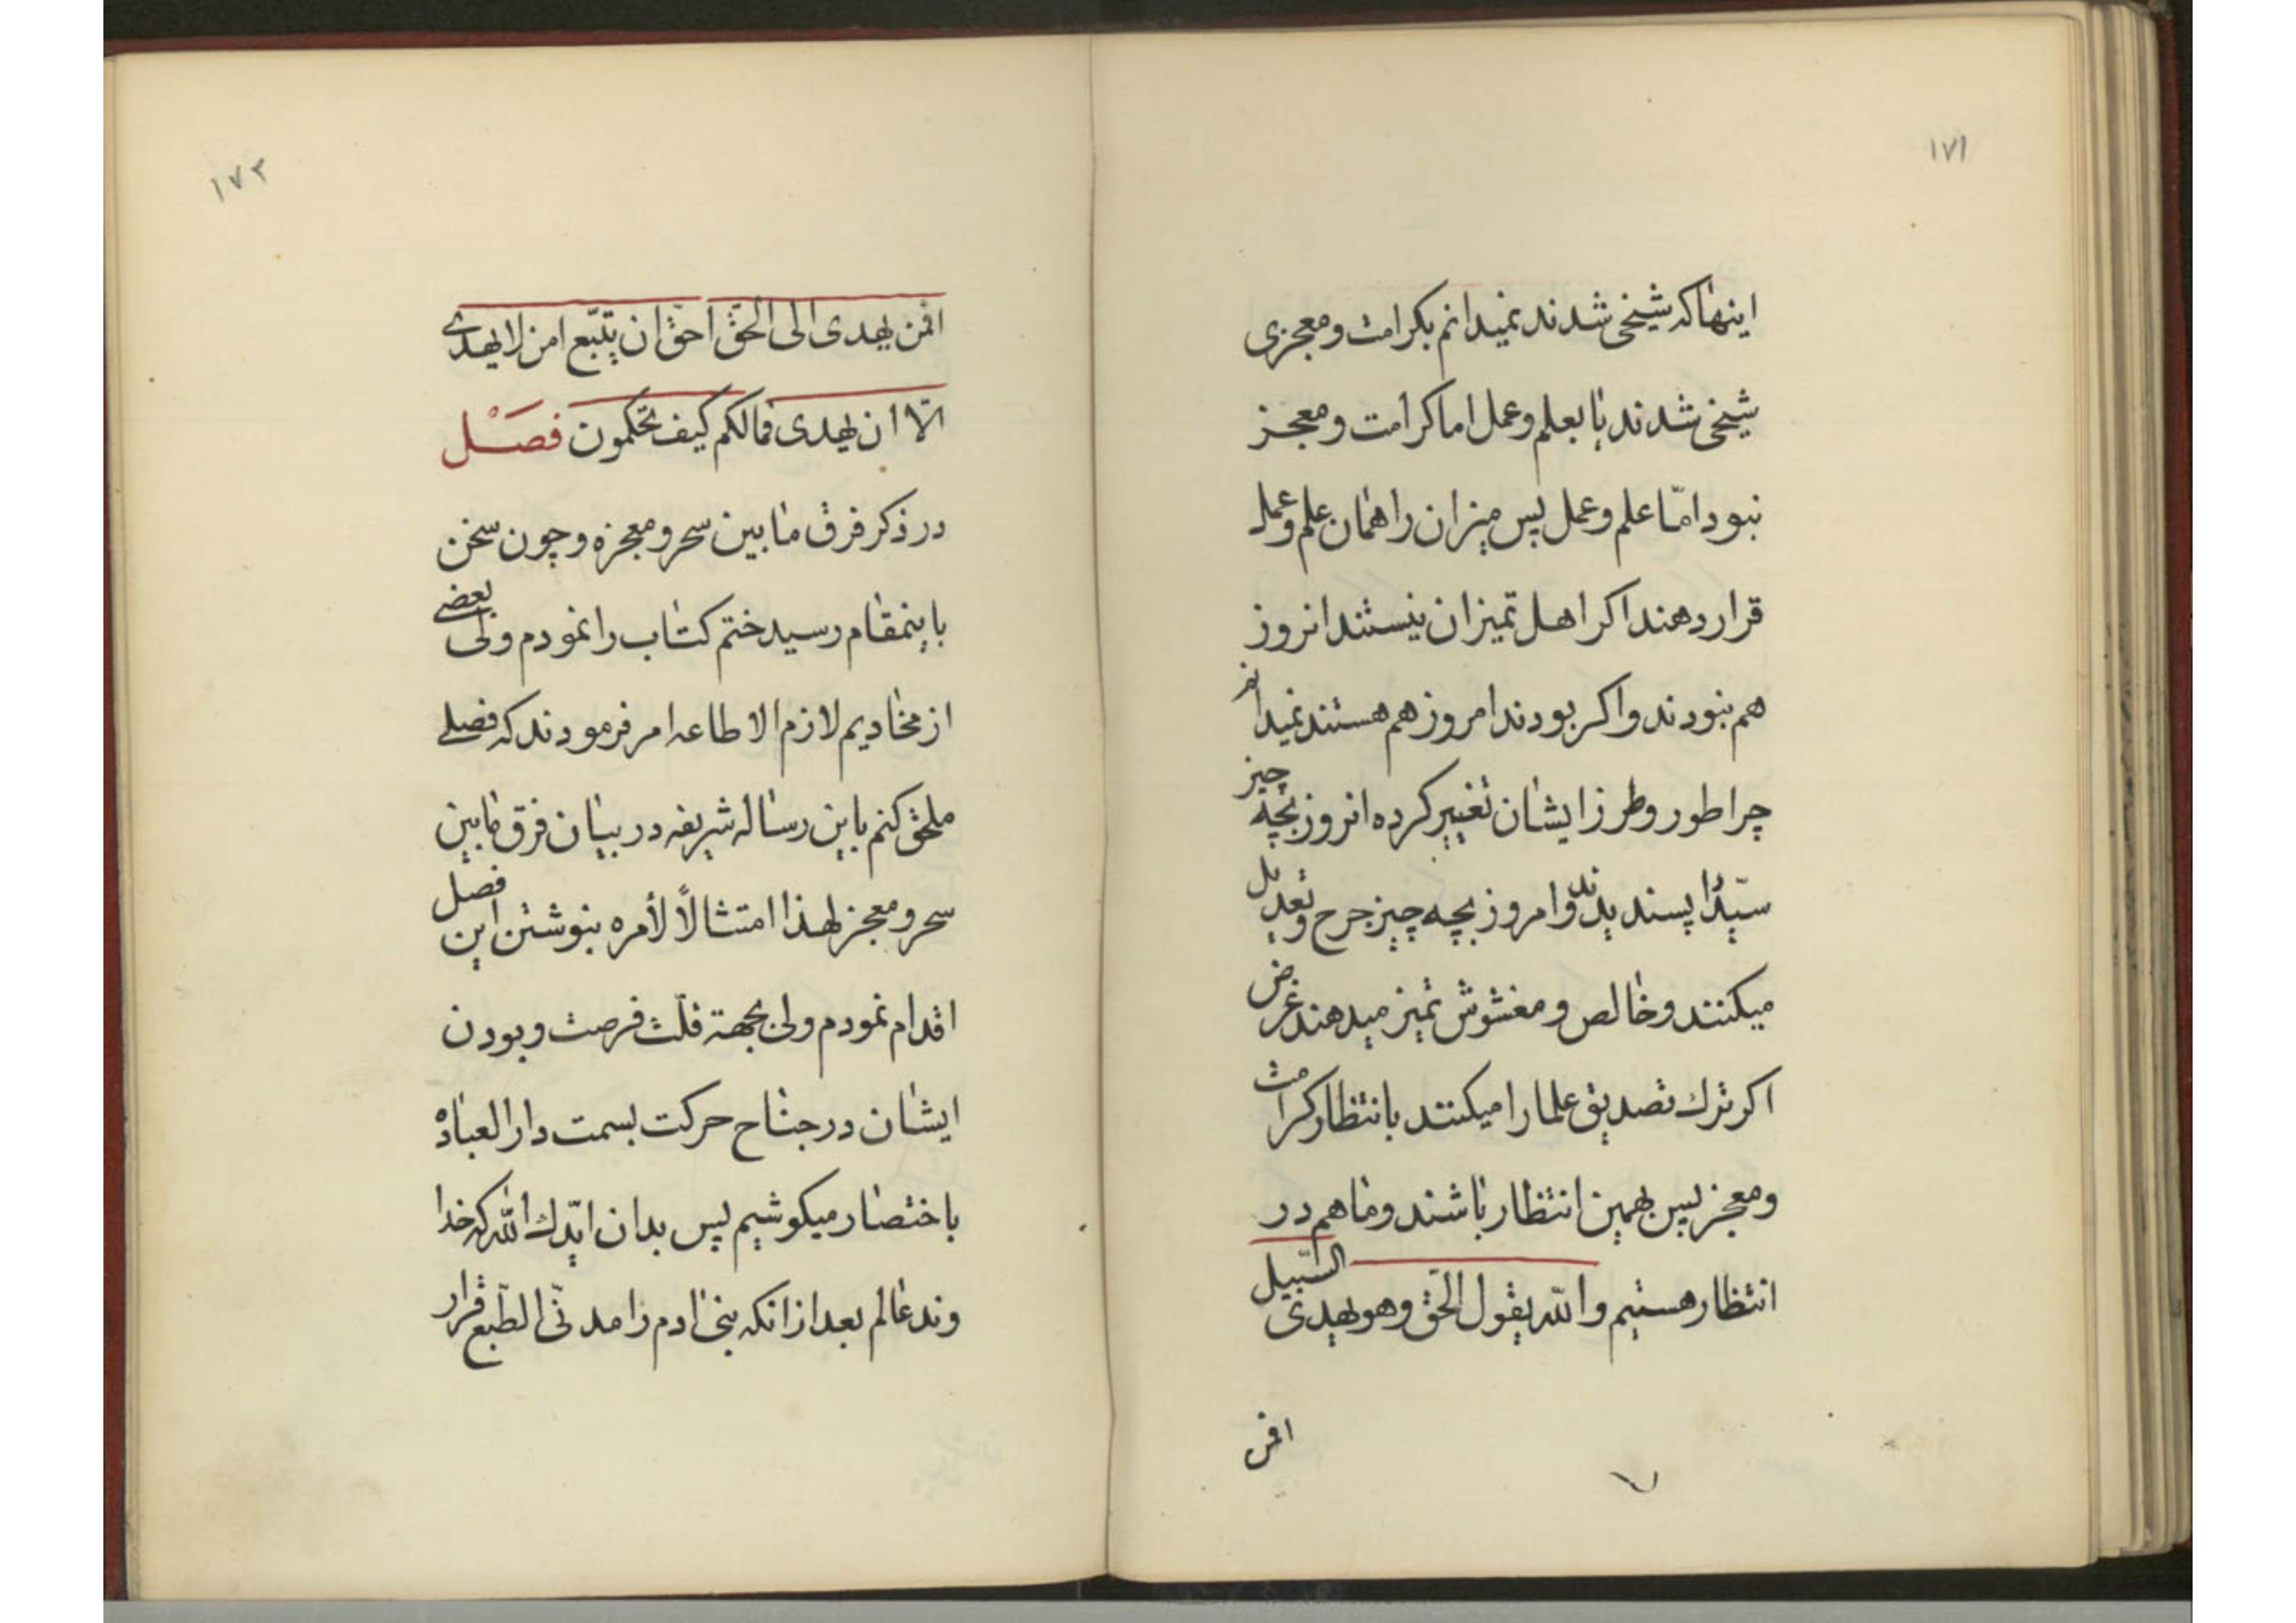 ۱۷۱
اینها که شیخی شدند نمیدانم بکرامت و معجزی
شیخی شدند یا بعلم و عمل اما کرامت و معجز
نبود امّا علم و عمل پس میزان را همان علم و عمل
قرار دهند اکر اهل تمیزان نیستند انروز
هم نبودند و اکر بودند امروز هم هستند نمیدانم
چرا طور و طرز ایشان تغییر کرده انروز بچه چیز
سیّد را پسندیدند و امروز بچه چیز جرح و تعدیل
میکنند و خالص و مغشوش تمیز میدهند غرض
اکر ترك تصدیق علما را میکنند بانتظار کرامت
و معجز پس بهمین انتظار باشند و ما هم در
انتظار هستیم و الله یقول الحق و هو یهدی السّبیل
افمن
۱۷۲
افمن یهدی الی الحقّ احقّ ان یتّبع امن لا یهدی
الّا ان یهدی فمالکم کیف تحکمون فصَْل
در ذکر فرق ما بین سحر و معجزه و چون سخن
باینمقام رسید ختم کتاب را نمودم ولی بعضی
از مخادیم لازم الاطاعه امر فرمودند که فصلی
ملحق کنم باین رساله شریفه در بیان فرق مابین
سحر و معجز لهذا امتثالًا لأمره بنوشتن این فصل
اقدام نمودم ولی بجهة قلّت فرصت و بودن
ایشان در جناح حرکت بسمت دار العباده
باختصار میکوشیم پس بدان ایّدك الله که خدا
وند عالم بعد از انکه بنی ادم را مدنّی الطّبع قرار